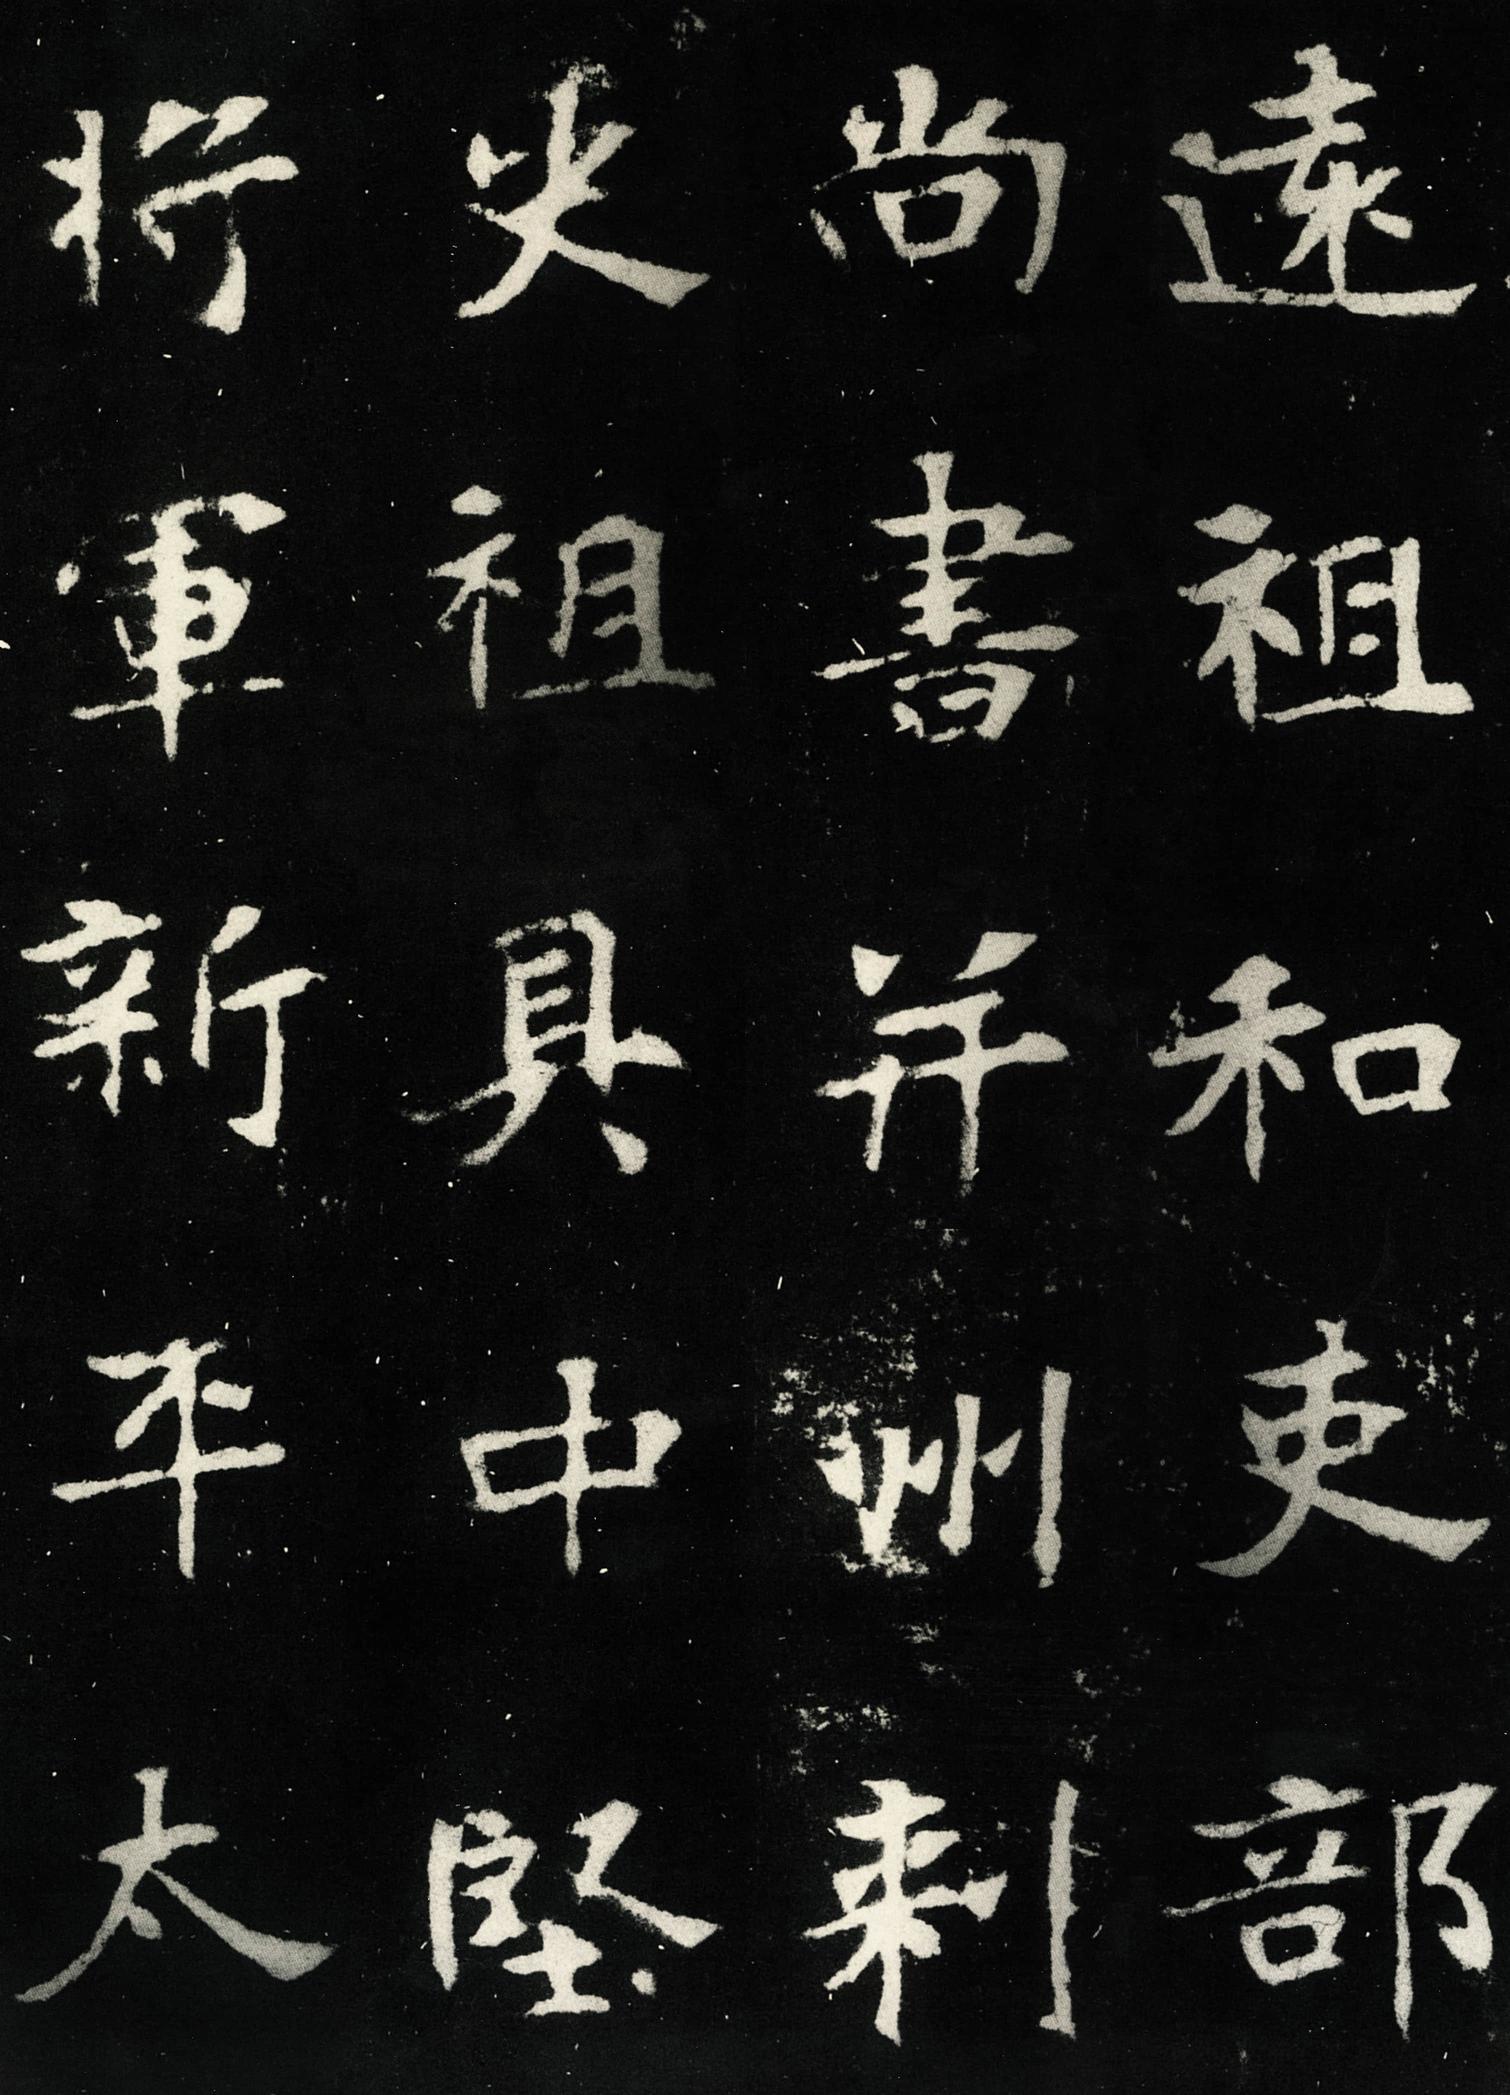 遠祖和吏部
尚書并州刺
史祖具中堅
將軍新平太